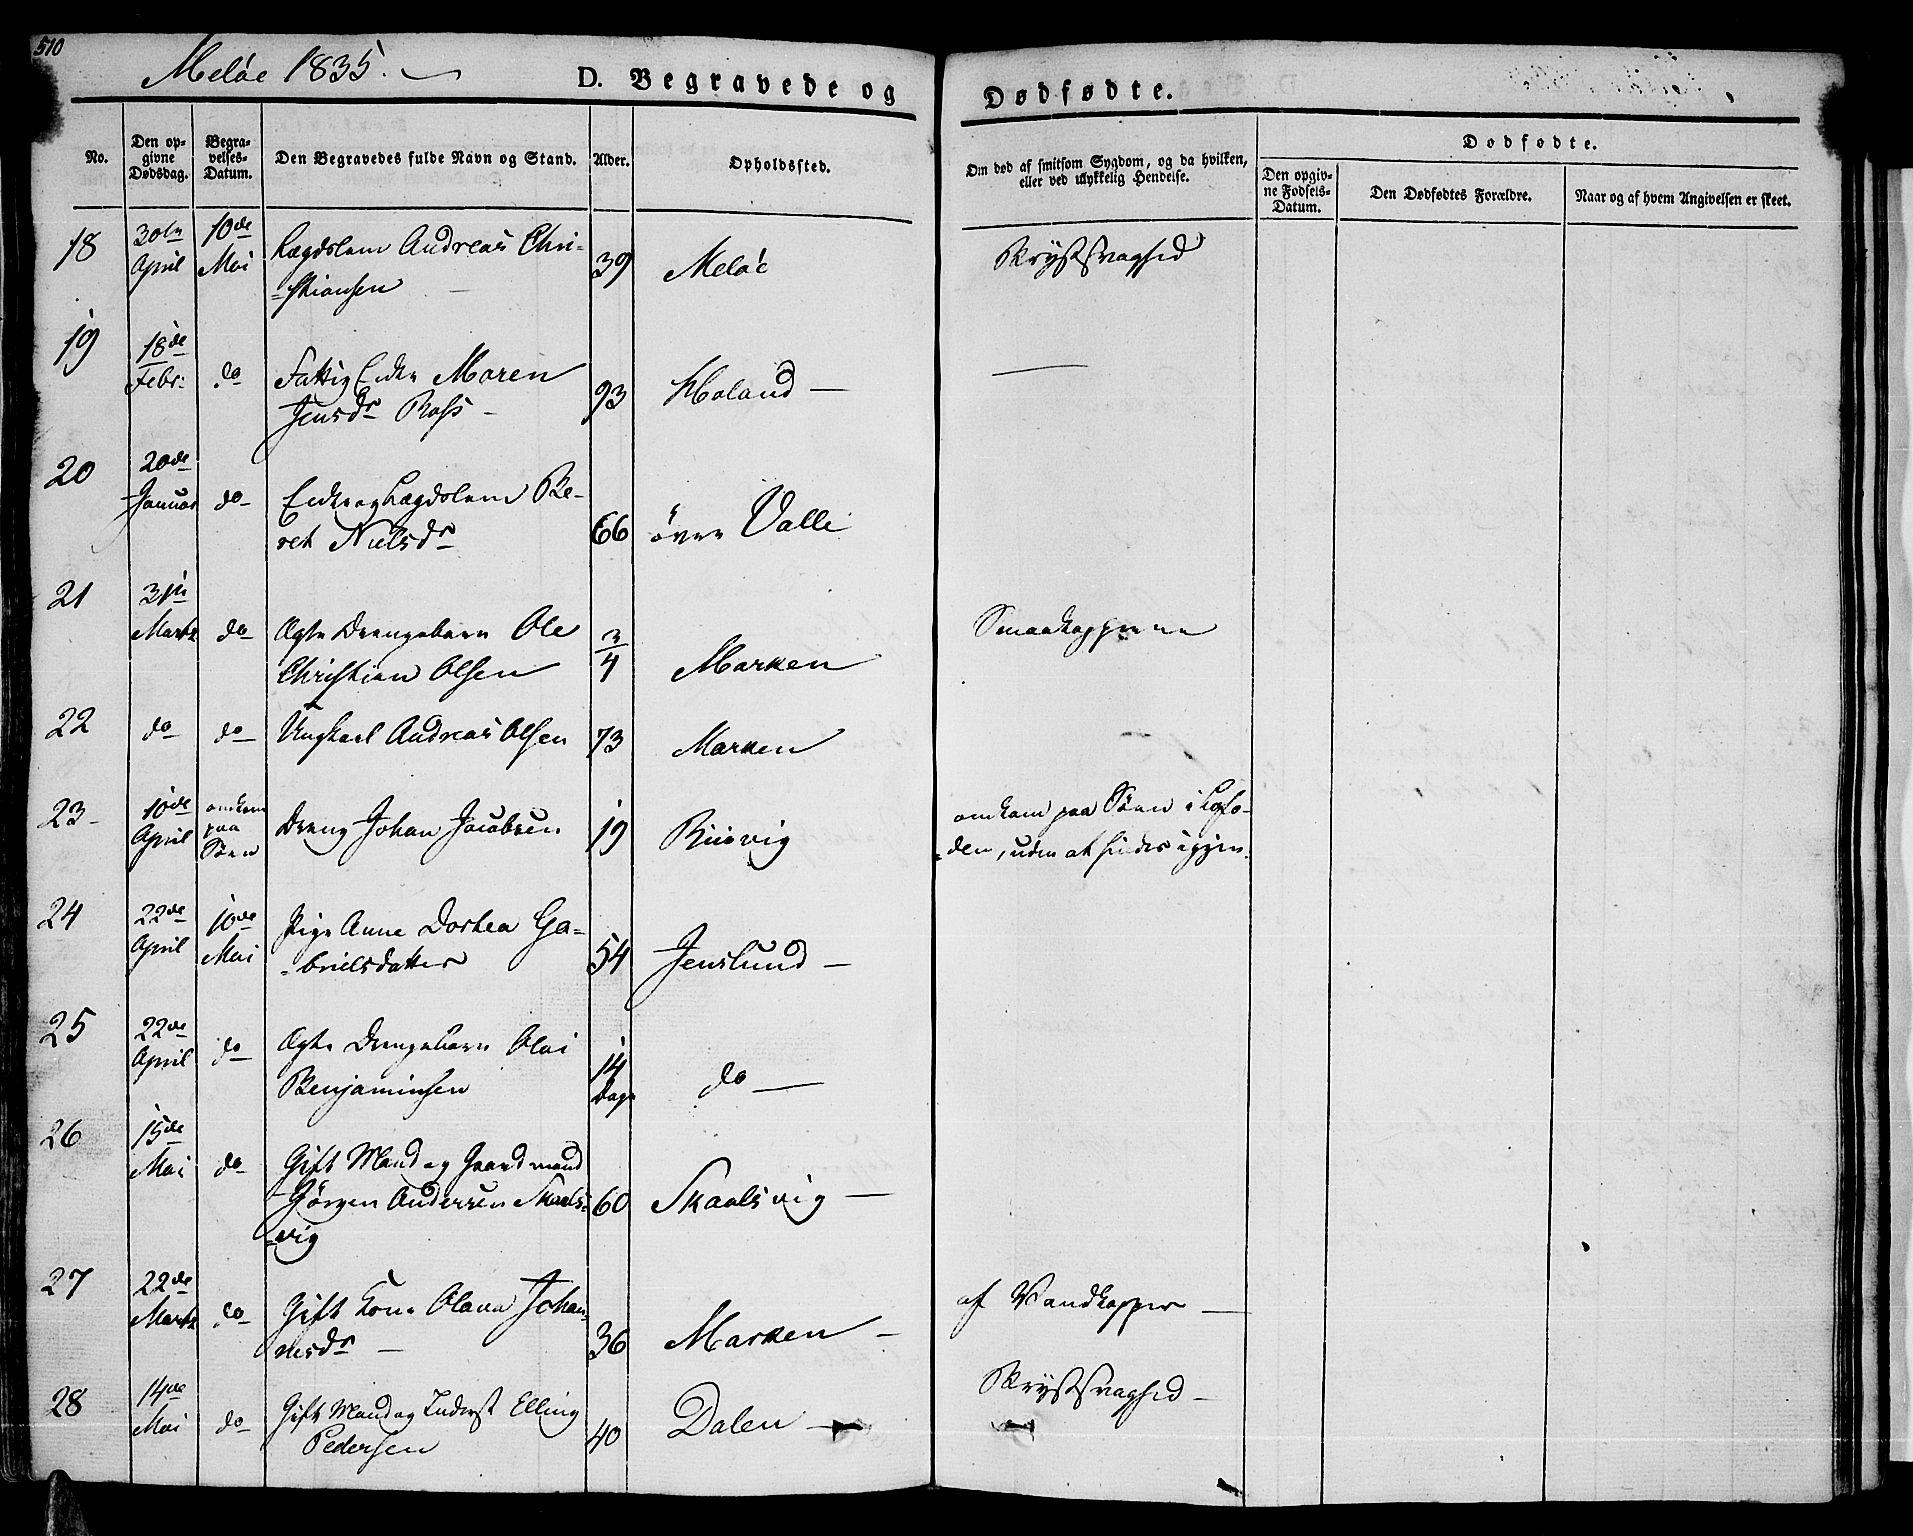 510
Meløe 1835.
D. Begravede og Dødfødte.
No.
Den op-
givne
Dødsdag.
Begra-
velses-
Datum.
Den Begravedes fulde Navn og Stand.
Alder.
Opholdssted.
Om død af smitsom Sygdom, og da hvilken,
eller ved ulykkelig Hendelse.
Dødfødte.
Den opgiv-
ne Fødsels-
Datum.
Den Dødfødtes Forældre.
Naar og af hvem Angivelsen er skeet.
18 30te April 10de Mai Lægdslem Andreas Chri-
-stiansen 39 Meløe Brystsvaghed
19 18de Febr: do Fattig Enke Maren
Jensdr Rass - 93 Holand —
20 20de Januar do Enke og Lægdslem Be-
ret Nielsdr 66 övre Valle
21 31te Martz do Ægte Drengebarn Ole
Christian Olsen 3/4 Marken Smaakopperne
22 do do Ungkarl Andreas Olsen 73 Marken
23 10de April omkom
paa
Søen Dreng Johan Jacobsen 19 omkom paa Søen i Lofo-
-den, uden at findes igjen.
24 22de April 10de Mai Pige Anne Dorthea Ga-
-brielsdatter 54 Jenslund —
25 22de April do Ægte Drengebarn Olai
Benjaminsen 14 Dage do —
26 15de Mai do Gift Mand og Gaardmand
Jörgen Andersen Skaals-
-vig 60 Skaalsvig —
27 22de Martz do Gift Kone Olava Johan-
nesdr — 36 Marken — af Vandkopper —
28 14de Mai do Gift Mand og Inderst Elling
Pedersen 40 Dalen — Brystsvaghed —